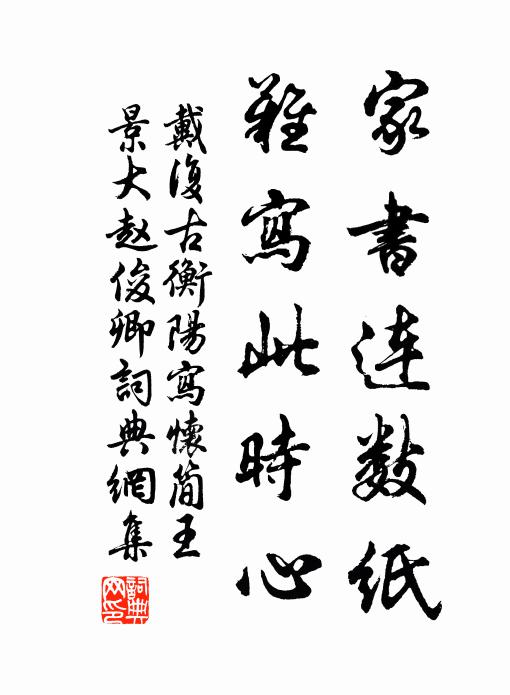 家書連数紙
難寫此時心
戴復古衡陽寫懷简王
景大赵俊卿詞典網集
詞典网印